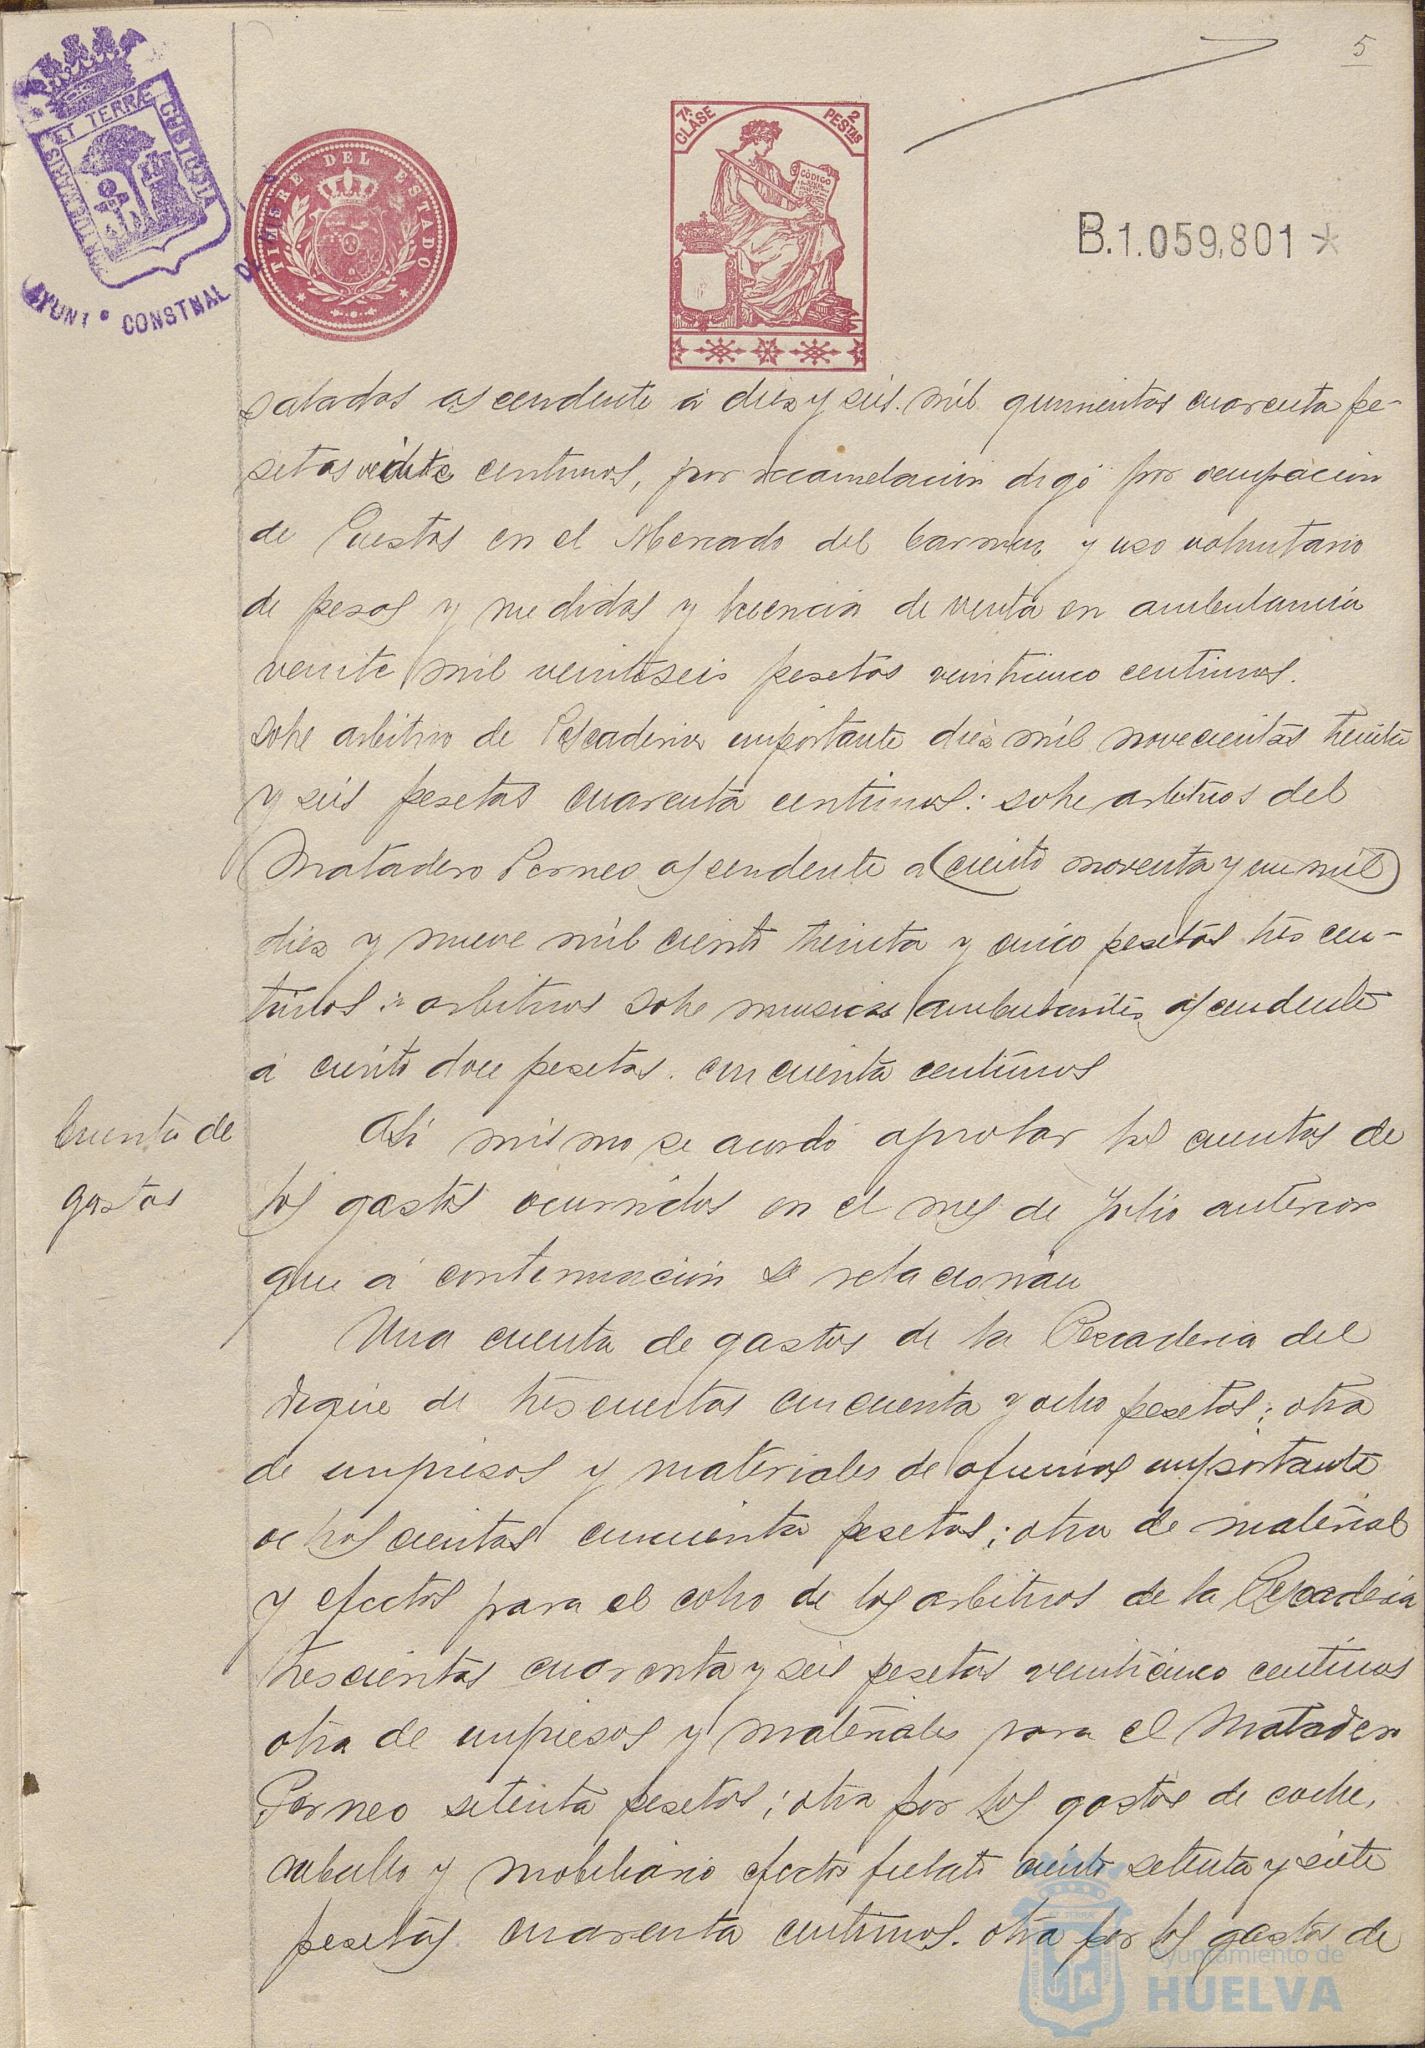 5
PORTUS MARIS ET TERRÆ CUSTODIA
AYUNTº CONSTNAL DE
TIMBRE DEL ESTADO
7ª CLASE
2 PESTAS
CÓDIGO
B.1.059,801*
salados ascendente á diez y seis mil quinientos cuarenta pe-
setas veinte centimos, por recaudación digo por ocupacion
de Puestos en el Mercado del Carmen y uso voluntario
de pesas y medidas y licencia de venta en ambulancia
veinte mil veintiseis pesetas veinticinco centimos.
sobre arbitrio de Pescaderia importante diez mil novecientas treinta
y seis pesetas cuarenta centimos: sobre arbitrios del
Matadero Perneo ascendente a (ciento noventa y un mil)
diez y nueve mil ciento treinta y cinco pesetas tres cen-
timos: arbitrios sobre musicas ambulantes ascendente
á ciento doce pesetas cincuenta centimos
Cuenta de
gastos
Asi mismo se acordó aprobar las cuentas de
los gastos ocurridos en el mes de Julio anterior
que á continuación se relacionan
Una cuenta de gastos de la Pescaderia del
Dique de trescientas cincuenta y ocho pesetas; otra
de impresos y materiales de oficinas importante
ochocientas cincuenta pesetas; otra de material
y efectos para el cobro de los arbitrios de la Pescaderia
trescientas cuarenta y seis pesetas veinticinco centimos
otra de impresos y materiales para el Matadero
Perneo setenta pesetas; otra por los gastos de coche,
caballo y mobiliario efectos fielato ciento setenta y siete
pesetas cuarenta centimos. otra por los gastos de
Ayuntamiento de
HUELVA